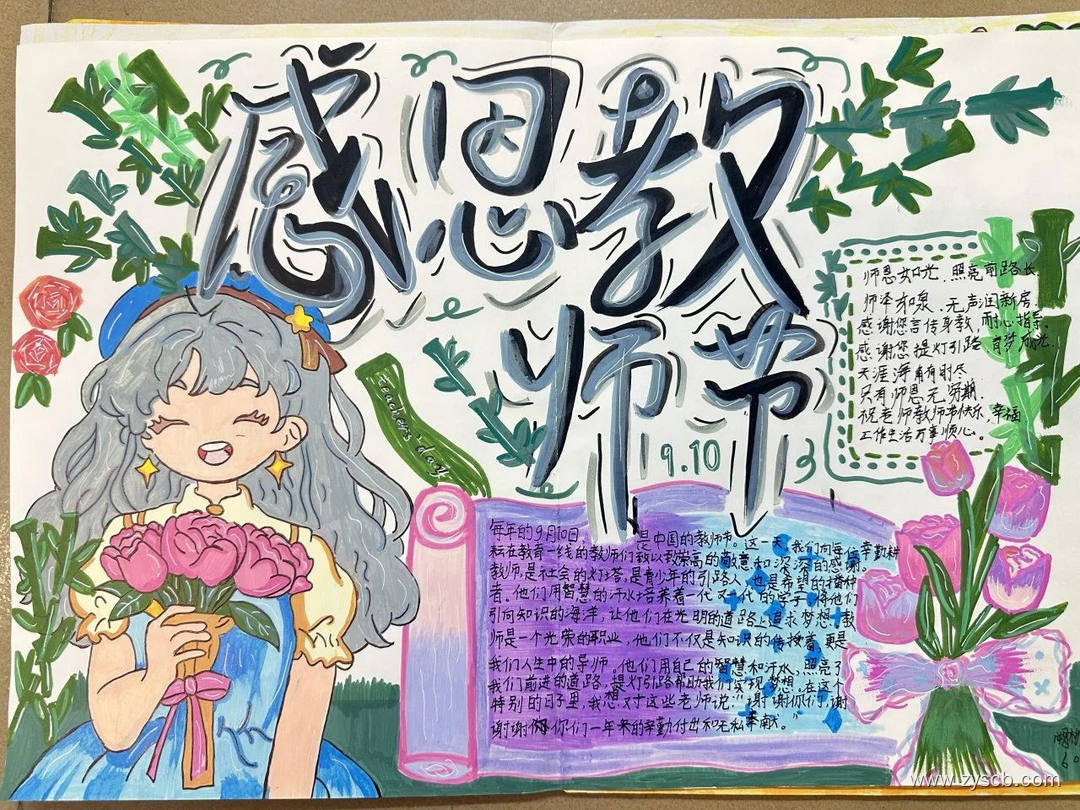 感恩教
师节
9.10
teachers day
师恩如光,照亮前路长
师泽如泉,无声润新房.
感谢您言传身教,耐心指导.
感谢您提灯引路 育梦成光!
天涯海角有时尽
只有师恩无穷期.
祝老师教师节快乐,幸福
工作生活万事顺心。
每年的9月10日, 是中国的教师节。这一天,我们向每位辛勤耕
耘在教育一线的教师们致以最崇高的敬意和深深的感谢。
教师,是社会的灯塔,是青少年的引路人,也是希望的播种
者。他们用智慧的汗水培养着一代又一代的学子,将他们
引向知识的海洋,让他们在光明的道路上追求梦想。教
师是一个光荣的职业,他们不仅是知识的传授者,更是
我们人生中的导师,他们用自己的智慧和汗水,照亮了
我们前进的道路,提灯引路帮助我们实现梦想。在这个
特别的日子里,我想对这些老师说:"谢谢你们,谢
谢谢你们一年来的辛勤付出和无私奉献。"
www.zyscb.com